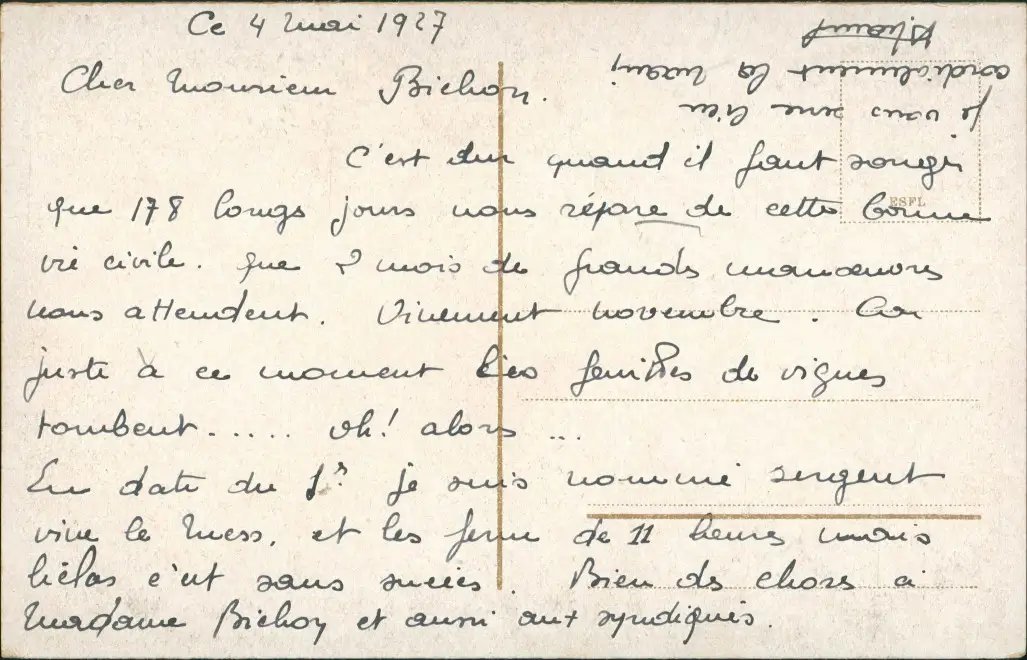 Ce 4 mai 1927
Cher Monsieur Bichon.
C'est dur quand il faut songer
que 178 longs jours nous sépare de cette bonne
vie civile. que 2 mois de grandes manœuvres
nous attendent. Vivement novembre. Car
juste à ce moment les feuilles de vignes
tombent...... oh! alors ...
En date du 1er je suis nommé sergent
vive le mess, et les perm de 11 heures mais
hélas c'est sans succès. Bien des choses à
Madame Bichon et aussi aux syndiqués.
je vous serre bien
cordialement la main
ESFL